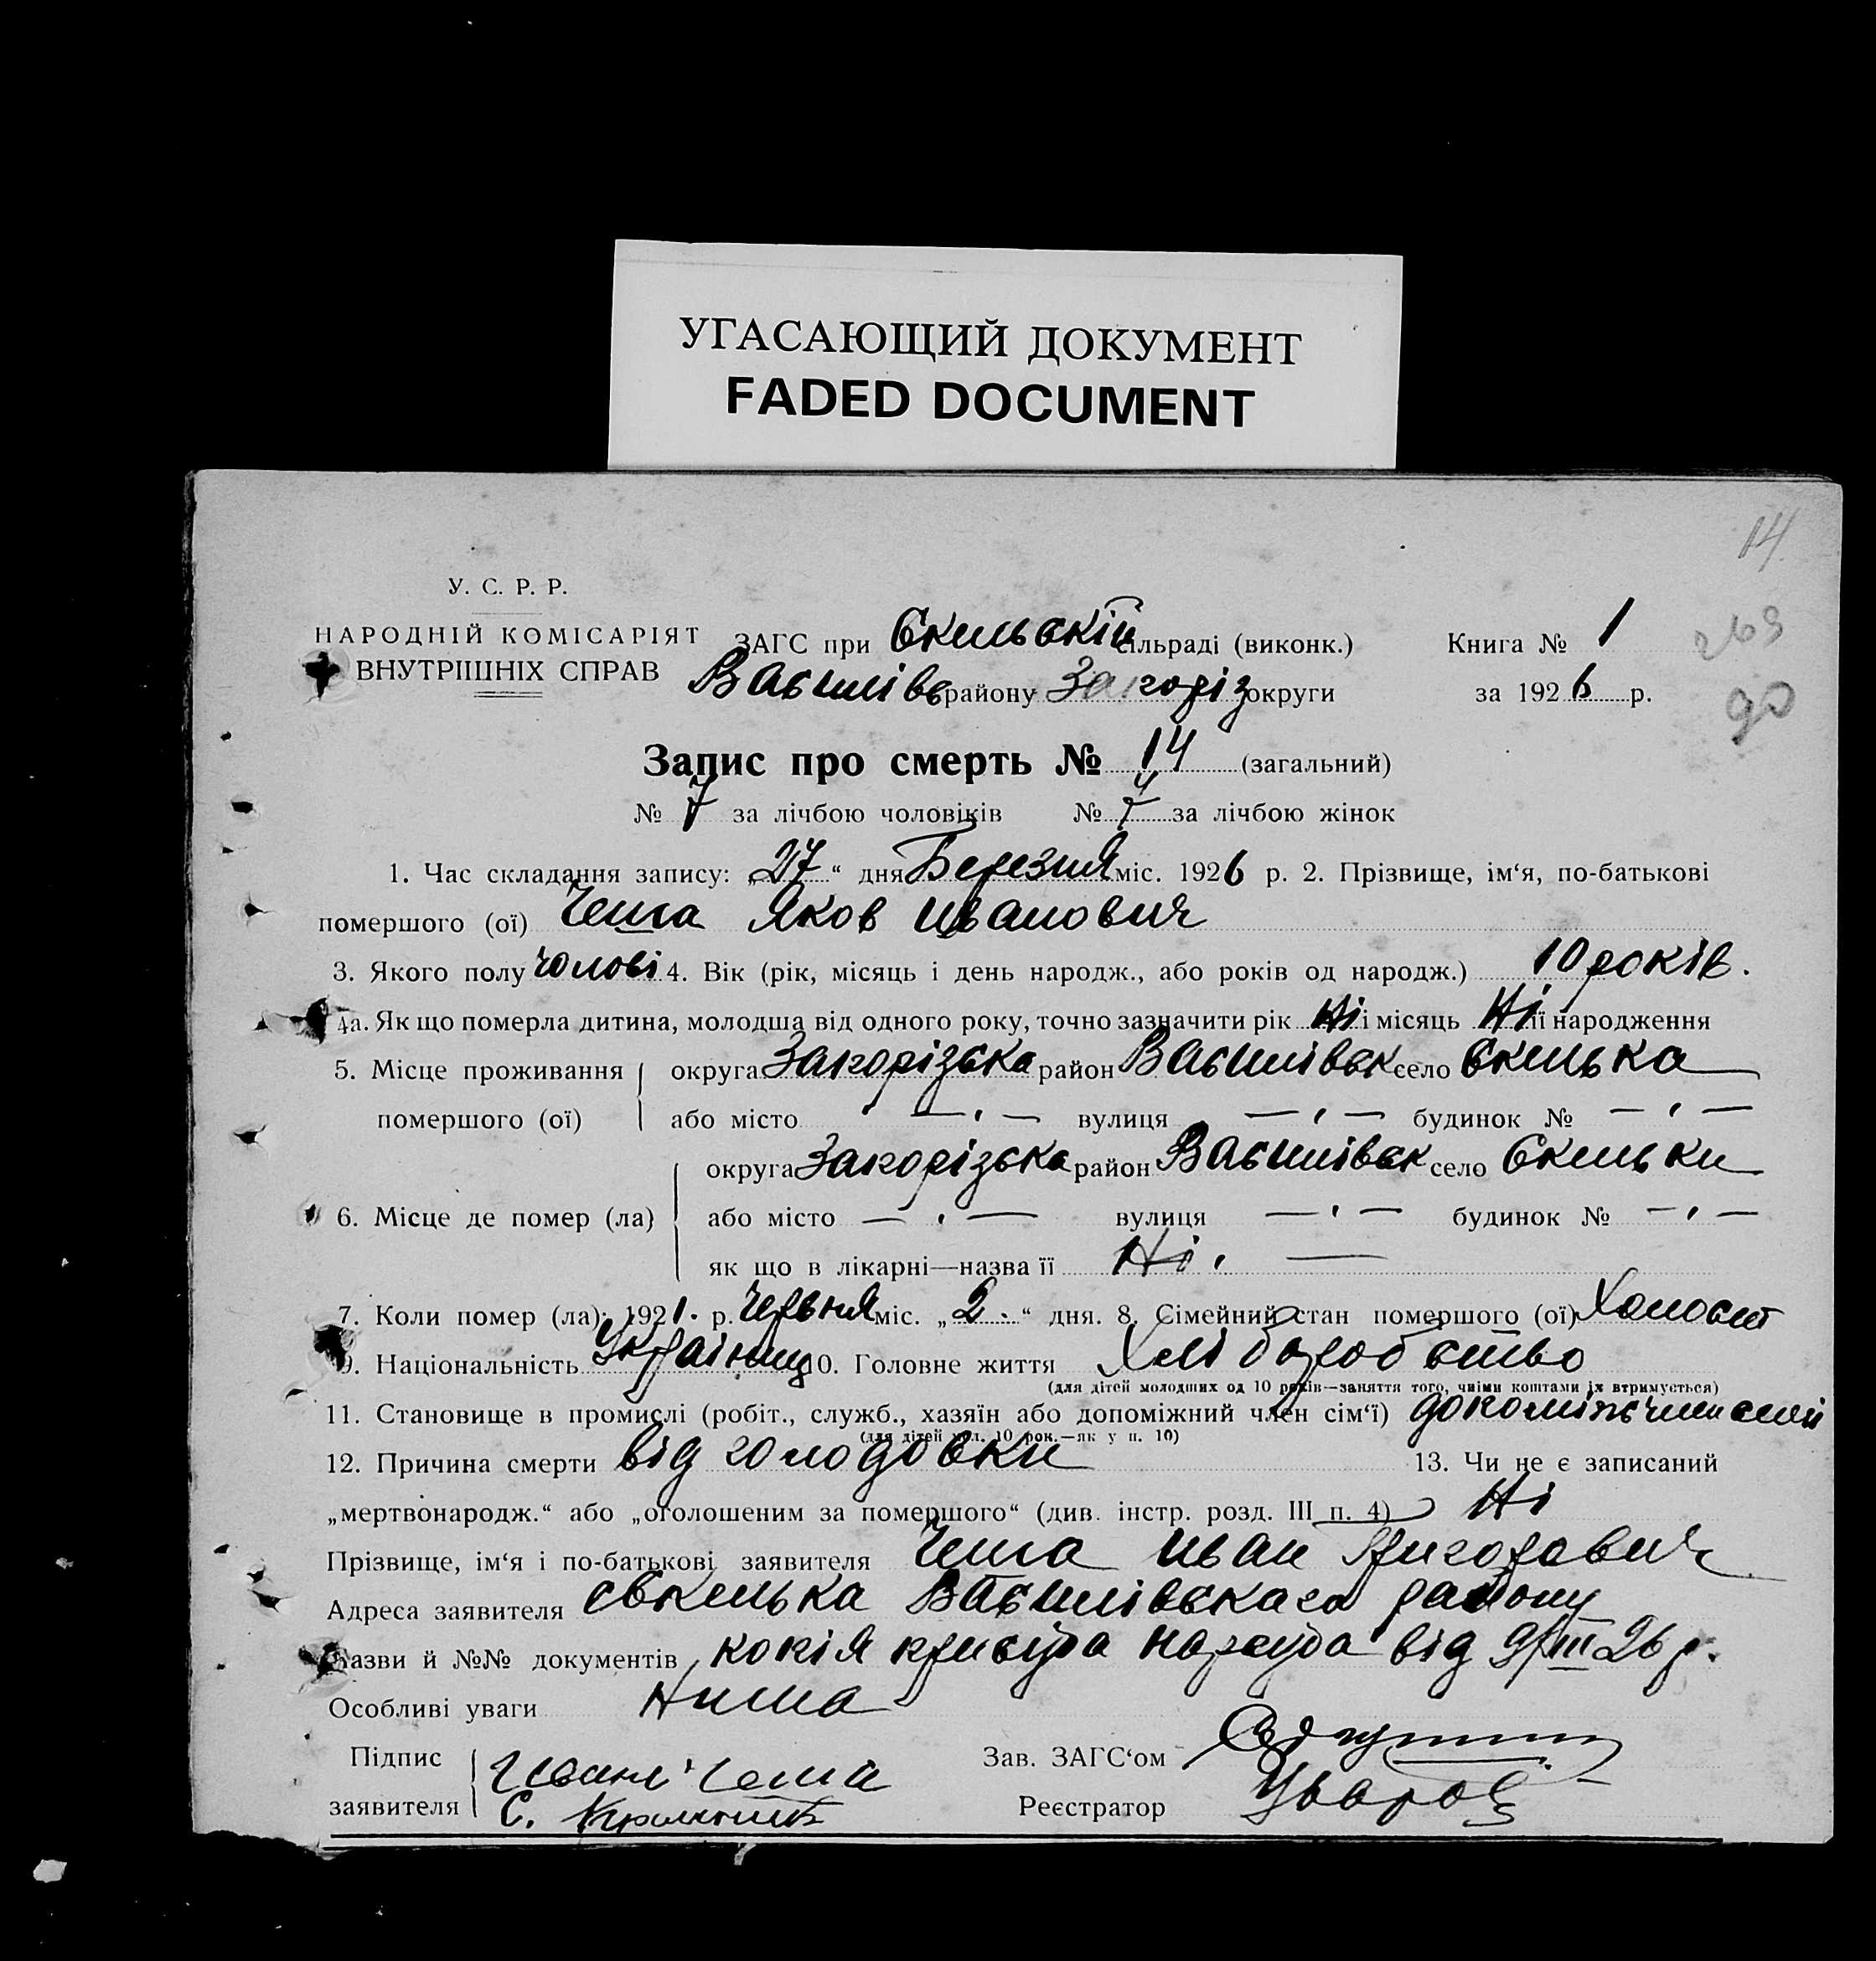 УГАСАЮЩИЙ ДОКУМЕНТ
FADED DOCUMENT
14
У. С. Р. Р.
НАРОДНІЙ КОМІСАРІЯТ
ВНУТРІШНІХ СПРАВ
ЗАГС при Скельскій сільраді (виконк.) Книга № 1
Василівс району Запоріз округи за 1926 р.
90
Запис про смерть № 14 (загальний)
№ 7 за лічбою чоловіків № за лічбою жінок
1. Час складання запису: „27“ дня Березня міс. 1926 р. 2. Прізвище, ім‘я, по-батькові
помершого (ої) Яков Иванович
3. Якого полу чолові 4. Вік (рік, місяць і день народж., або років од народж.) 10 років.
4а. Як що померла дитина, молодша від одного року, точно зазначити рік Ні і місяць Ні її народження
5. Місце проживання округа Запорізська район Васи­лівск село Скелька
помершого (ої) або місто — , — вулиця — , — будинок № — , —
округа Запорізська район Василівск село Скельки
6. Місце де помер (ла) або місто — , — вулиця — , — будинок № — , —
як що в лікарні—назва її Ні. —
7. Коли помер (ла): 1921. р. Червня міс. „2.“ дня. 8. Сімейний стан помершого (ої) Холост
9. Національність Українец 10. Головне життя Хліборобство
(для дітей молодших од 10 років—заняття того, чиїми коштами їх втримується)
11. Становище в промислі (робіт., служб., хазяїн або допоміжний член сім‘ї)
(для дітей мол. 10 рок.—як у п. 10)
12. Причина смерти від голодовки 13. Чи не є записаний
„мертвонародж.“ або „оголошеним за помершого“ (див. інстр. розд. III п. 4) Ні
Прізвище, ім‘я і по-батькові заявителя Иван Григорович
Адреса заявителя Василівскаго району
Назви й №№ документів копія нарсуда від 9/III 26 р.
Особливі уваги Нима
Підпис Зав. ЗАГС‘ом
заявителя Реєстратор